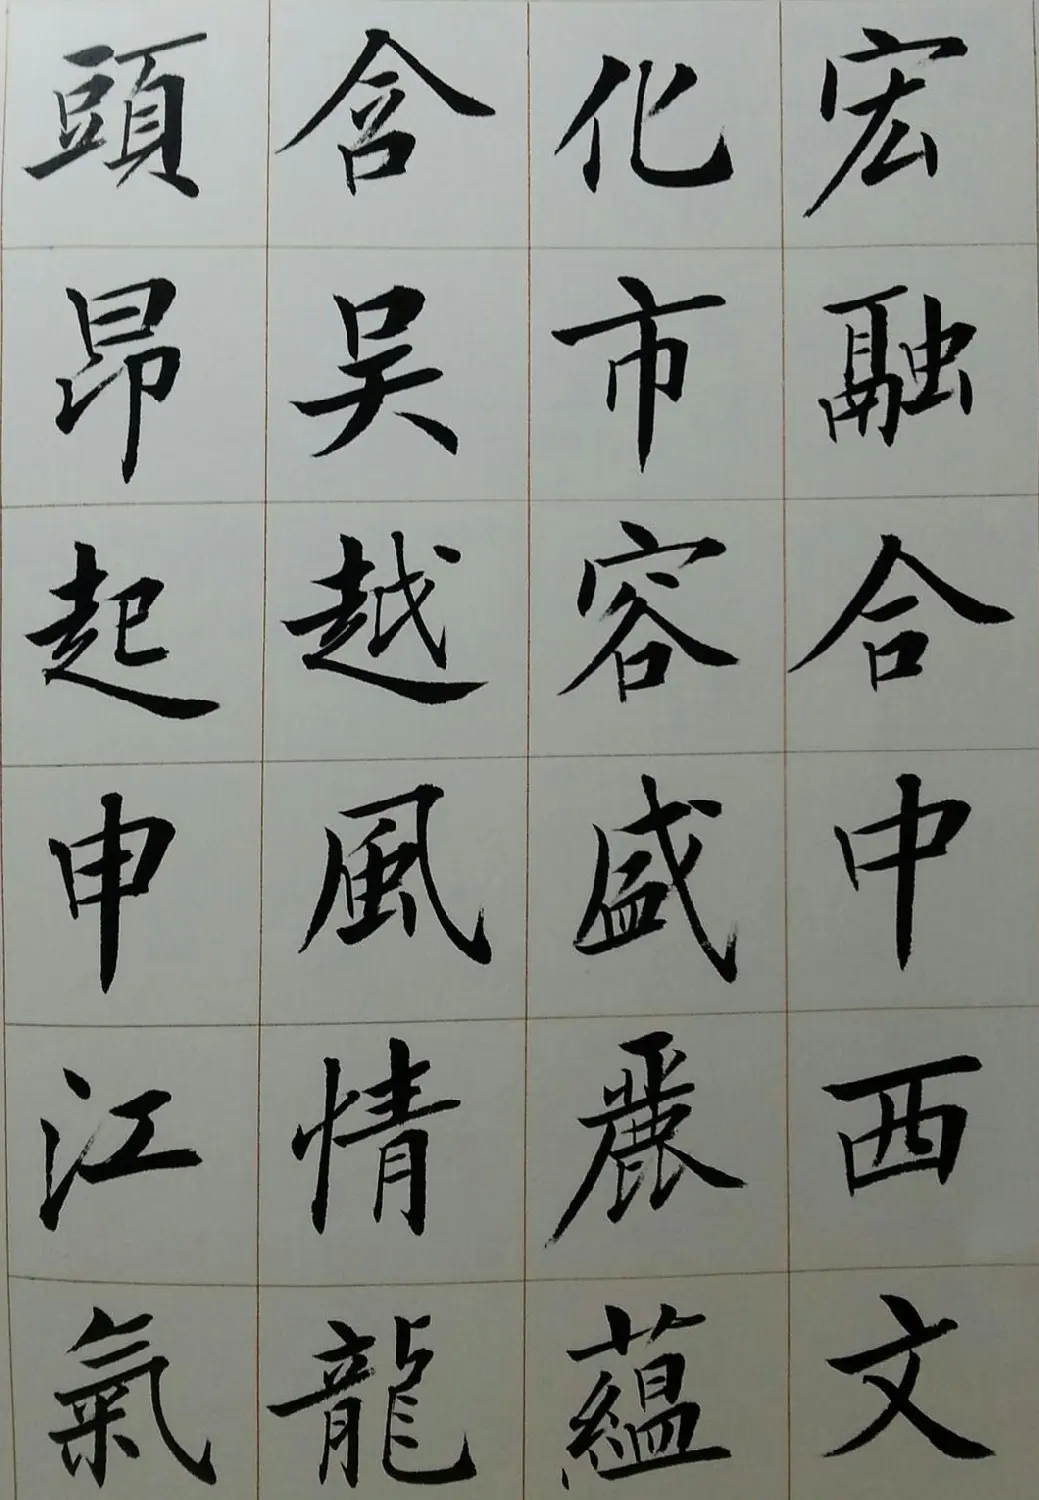 宏融合中西文
化市容盛麗蘊
含吴越風情龍
頭昂起申江氣